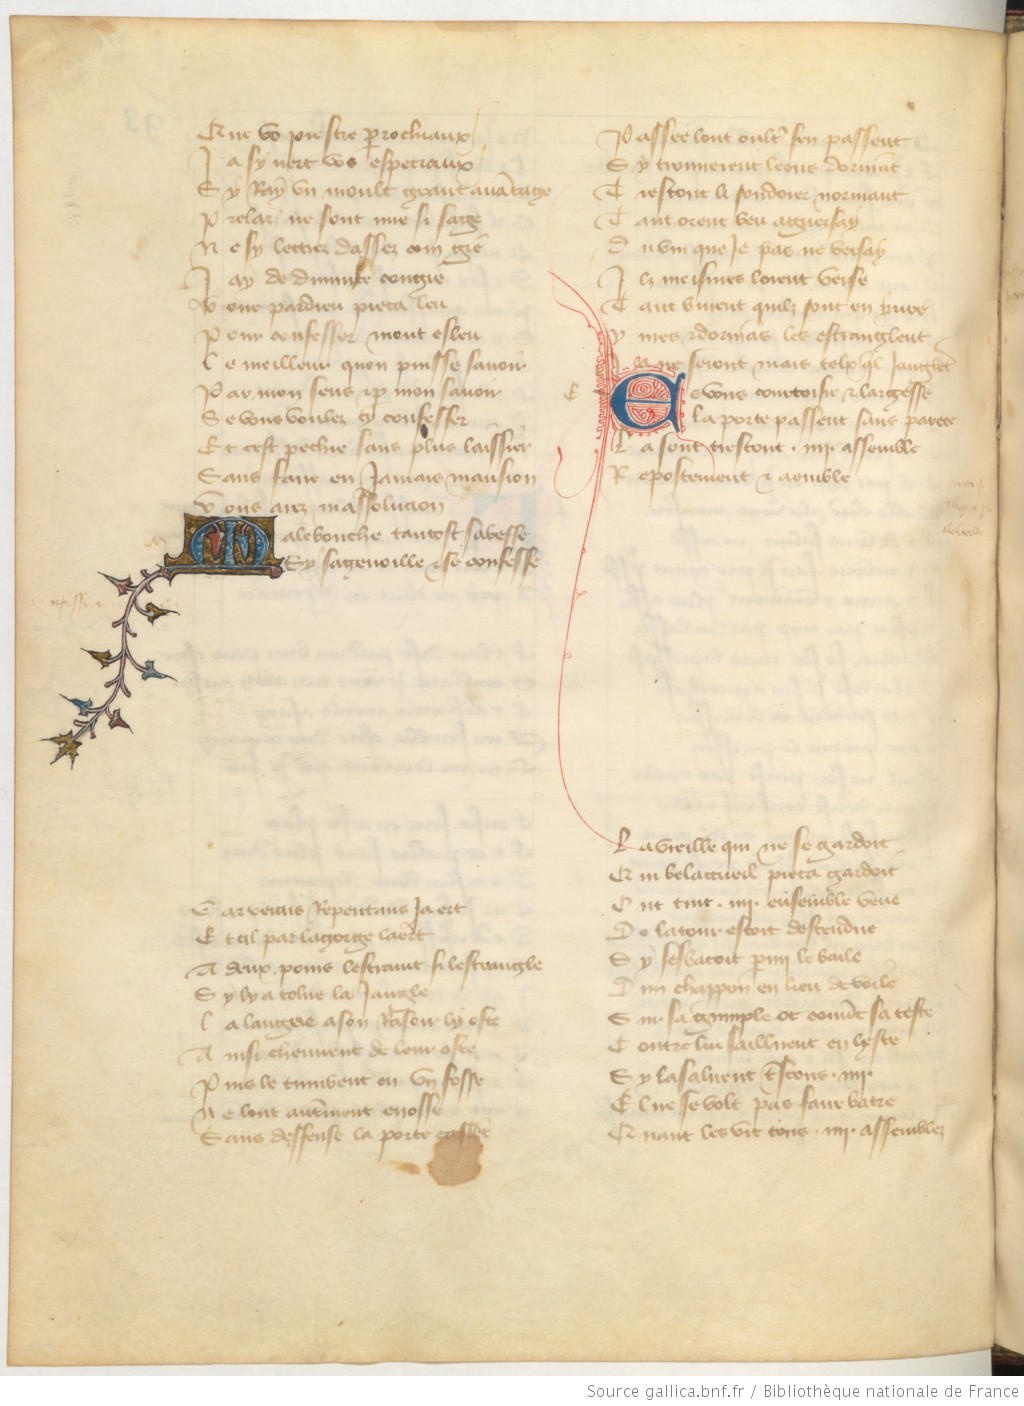 Que vo prestre perrochiaux
Ja sy nert vos especiaux
Sy Ray un moult grant avantage
Prelas ne sont mie si sage
Ne sy lettrez dassez com gie
Jay de divinite congie
Voire pardieu pieca leu
Pour confesser mont esleu
Le meilleur quon puisse savoir
Par mon sens et par mon savoir
Se vous voulez cy confesser
Et cest pechie sans plus laissier
Sans faire en Jamais mansion
Vous arez massolucion
Malebouche tantost sabesse
Sy sagenoille et se confesse
Car verais Repentans Ja ert
Et cil par la gorge laert
A deux poins lestraint si lestrangle
Sy ly a tolue la Jangle
La langue a son Rasoir ly oste
Ainsi chevirent de leur oste
Puis le tumbent en un fosse
Ne lont autrement enosse
Sans deffense la porte cassee
Passee lont oultre sen passent
Sy trouverent leens dormant
Trestout li soudoier normant
Tant orent beu a guersay
Du vin que Je pas ne versay
Ilz meismes lorent verse
Tant
Yvres et dormans les estranglent
Ja ne seront mais telz quil Janglent
E
Es vous courtoisie et largesse
La porte passent sans parece
La sont trestout .iiii. assemble
Repostement et a emble
La vieille qui ne se gardoit
Qui belacueil pieca gardoit
Ont tuit .iiii. ensemble veue
De la tour estoit descendue
Sy sesbatoit parmi le baile
Dun chappon en lieu de voile
Sur sa guimple ot couvert sa teste
Contre lui saillirent en heste
Sy la saluent trestous .iiii.
El ne se volt pas faire batre
Quant les vit tous .iiii. assemblez
Source gallica.bnf.fr / Bibliothèque nationale de France